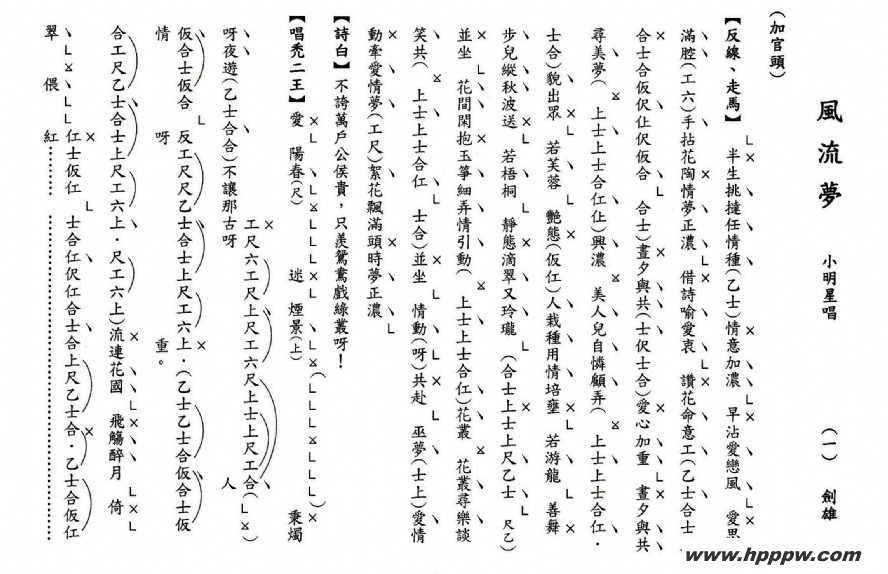 風流夢 小明星唱 (一) 劍雄
(加官頭)
【反線、走馬】 半生挑撻任情種(乙士)情意加濃 早沾愛戀風 愛思
滿腔(工六)手拈花陶情夢正濃 借詩喻愛衷 讚花命意工(乙士合士
合士合仮伬仩伬仮合 合士)晝夕與共(士伬士合)愛心加重 晝夕與共
尋美夢( 上士上士合仜仩)興濃 美人兒自憐顧弄( 上士上士合仜·
士合)貌出眾 若芙蓉 艷態(仮仜)人栽種用情培壅 若游龍 善舞
步兒縱秋波送 若梧桐 靜態滴翠又玲瓏 (合士上士上尺乙士 尺乙)
並坐 花間閑抱玉箏細弄情引動( 上士上士合仜)花叢 花叢尋樂談
笑共( 上士上士合仜 士合)並坐 情動(呀)共赴 巫夢(士上)愛情
動牽愛情夢(工尺)絮花飄滿頭時夢正濃
【詩白】不誇萬戶公侯貴,只羨鴛鴦戲綠叢呀!
【唱禿二王】愛 陽春(尺) 迷 煙景(上) 秉燭
呀夜遊(乙士合合)不讓那古呀 工尺六工尺上尺工六尺上士上尺工合( ) 人
仮合士仮合 反工尺尺乙士合士上尺工六上·(乙士乙士合仮合士仮
情 呀 重。
合工尺乙士合士上尺工六上·尺工六上)流連花國 飛觴醉月 倚
翠 偎 紅
仜士仮仜 士合仜伬仜合士合上尺乙士合·乙士合仮仜
www.hpppw.com